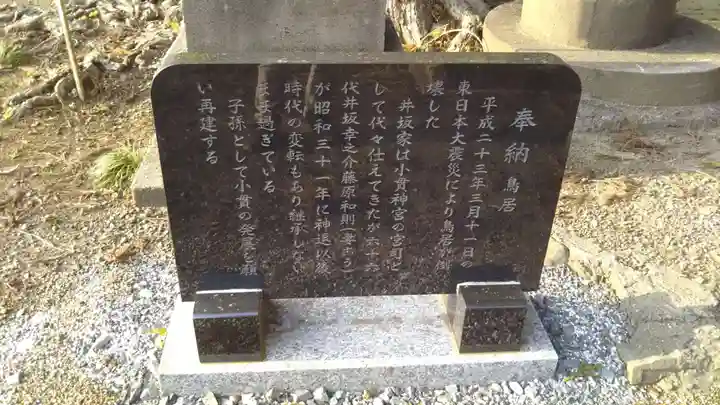 奉納 鳥居
平成二十三年三月十一日の
東日本大震災により鳥居が倒
壊した
井坂家は小貫神宮の宮司と
して代々仕えてきたが六十六
代井坂幸之介藤原和則(妻きう)
が昭和三十一年に神退以後
時代の変転もあり継承しない
まま過ぎている
子孫として小貫の発展を願
い再建する